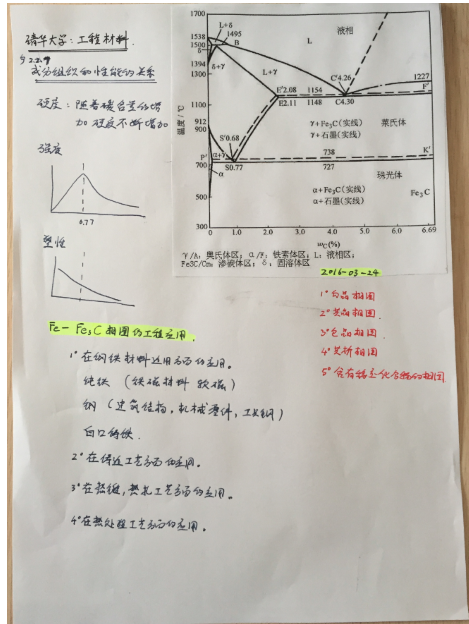 清华大学:工程材料.
§2.2.9
成分组织和性能的关系
硬度:随着碳含量的增
加硬度不断增加
强度
0.77
塑性
1700
1538
1500
1495
1394
1300
1100
912
900
700
500
300
温度/℃
L+δ
B
δ
δ+γ
L+γ
L
液相
C'4.26
1227
E'2.08
1154
F'
E2.11
1148
C4.30
γ+Fe₃C(实线)
莱氏体
γ+石墨(实线)
S'0.68
α+γ
P'
738
K'
S0.77
727
α
珠光体
α+Fe₃C(实线)
Fe₃C
α+石墨(实线)
0
1.0
2.0
3.0
4.0
5.0
6.0
6.69
wC(%)
γ/A:奥氏体区;α/F:铁素体区;L:液相区;
Fe3C/Cm:渗碳体区;δ:固溶体区
2016-03-24
1° 匀晶相图
2° 共晶相图.
3° 包晶相图
4° 共析相图
5° 含有稳定化合物的相图
Fe-Fe₃C相图的工程应用.
1° 在钢铁材料选用方面的应用.
纯铁 (铁磁材料 软磁)
钢 (建筑结构,机械零件,工具钢)
白口铸铁.
2° 在铸造工艺方面的应用.
3° 在热锻,热轧工艺方面的应用.
4° 在热处理工艺方面的应用.